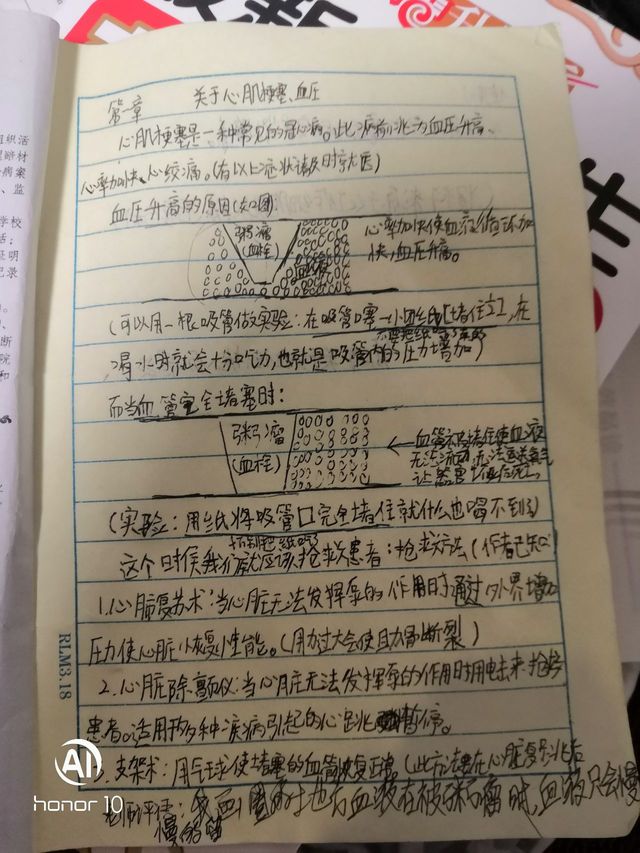 第一章 关于心肌梗塞、血压
心肌梗塞是一种常见的冠心病。此病前兆为血压升高、
心率加快、心绞痛。(有以上症状请及时就医)
血压升高的原因(如图)
粥瘤
(血栓)
血液
心率加快使血液循环加
快,血压升高。
(可以用一根吸管做实验:在吸管口塞一小团纸(堵住),在
喝水时就会十分吃力,也就是吸管内的压力增加)
而当血管完全堵塞时:
粥瘤
(血栓)
血管被堵住使血液
无法流动,无法运送氧气
(实验:用纸将吸管口完全堵住就什么也喝不到)
这个时侯我们就应该抢救患者:抢救方法(作者已知)
1.心脏复苏术:当心脏无法发挥泵的作用时通过外界增加
压力使心脏恢复性能。(用力过大会使肋骨断裂)
2.心脏除颤仪:当心脏无法发挥泵的作用时用电击来抢救
患者。适用于多种疾病引起的心跳暂停。
3.支架术:用气球使堵塞的血管恢复正常(此方法要在心脏复跳后
血液只会慢
慢
RLM3.18
AI
honor 10